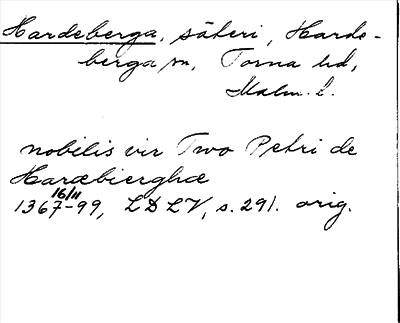 Hardeberga, säteri, Harde-
berga sn, Torna hd,
Malm. l.
nobilis vir Two Petri de
Haræbierghæ
16/11
1367-99, LDLV, s. 291. orig.